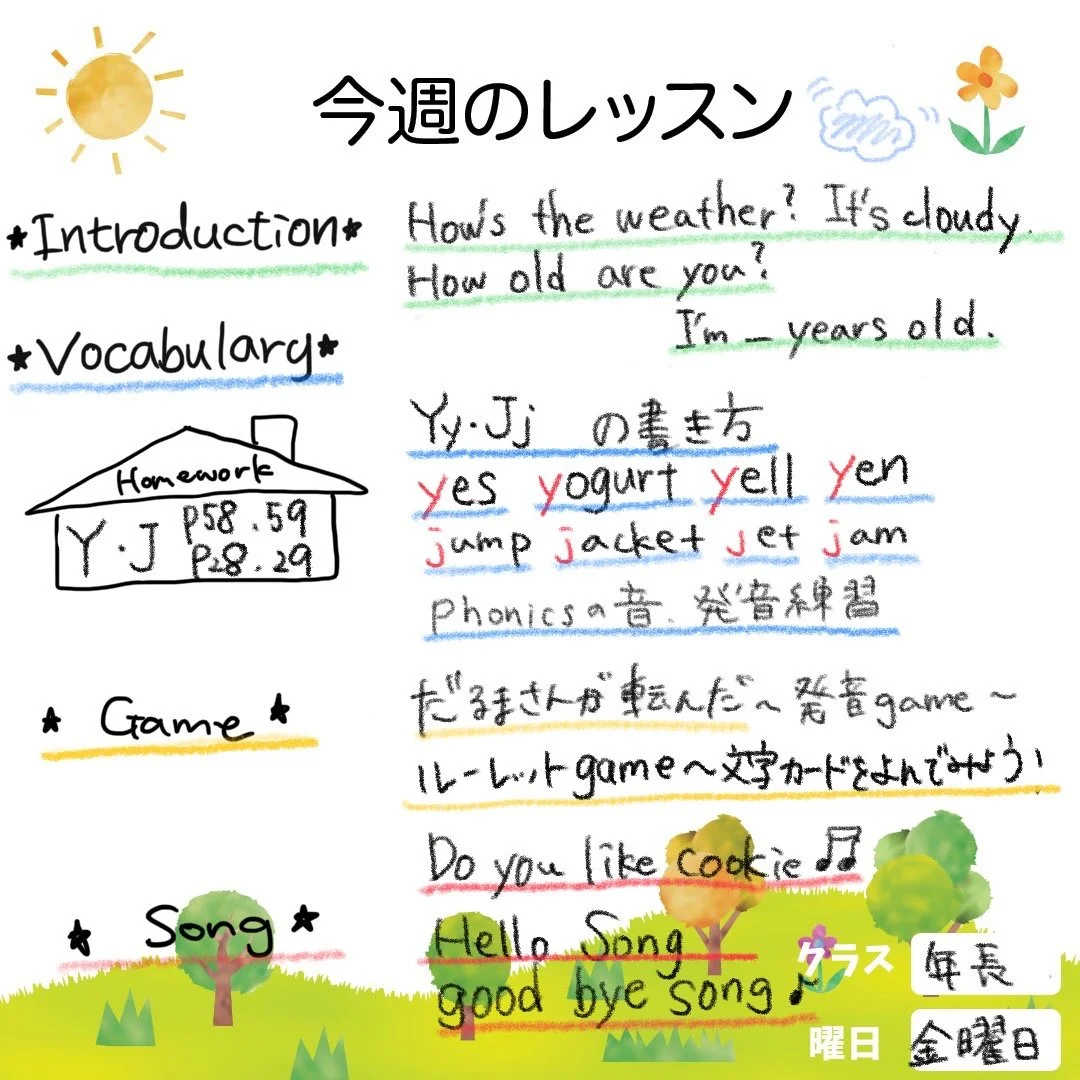 今週のレッスン
★Introduction★
How's the weather? It's cloudy.
How old are you?
I'm _ years old.
★Vocabulary★
Yy・Jj の書き方
yes yogurt yell yen
jump jacket jet jam
phonicsの音、発音練習
Homework
Y・J p58.59
P28.29
★ Game ★
だるまさんが転んだ～発音game～
ルーレットgame～文字カードをよんでみよう!
★ Song ★
Do you like cookie♫
Hello Song
good bye song♪
クラス 年長
曜日 金曜日